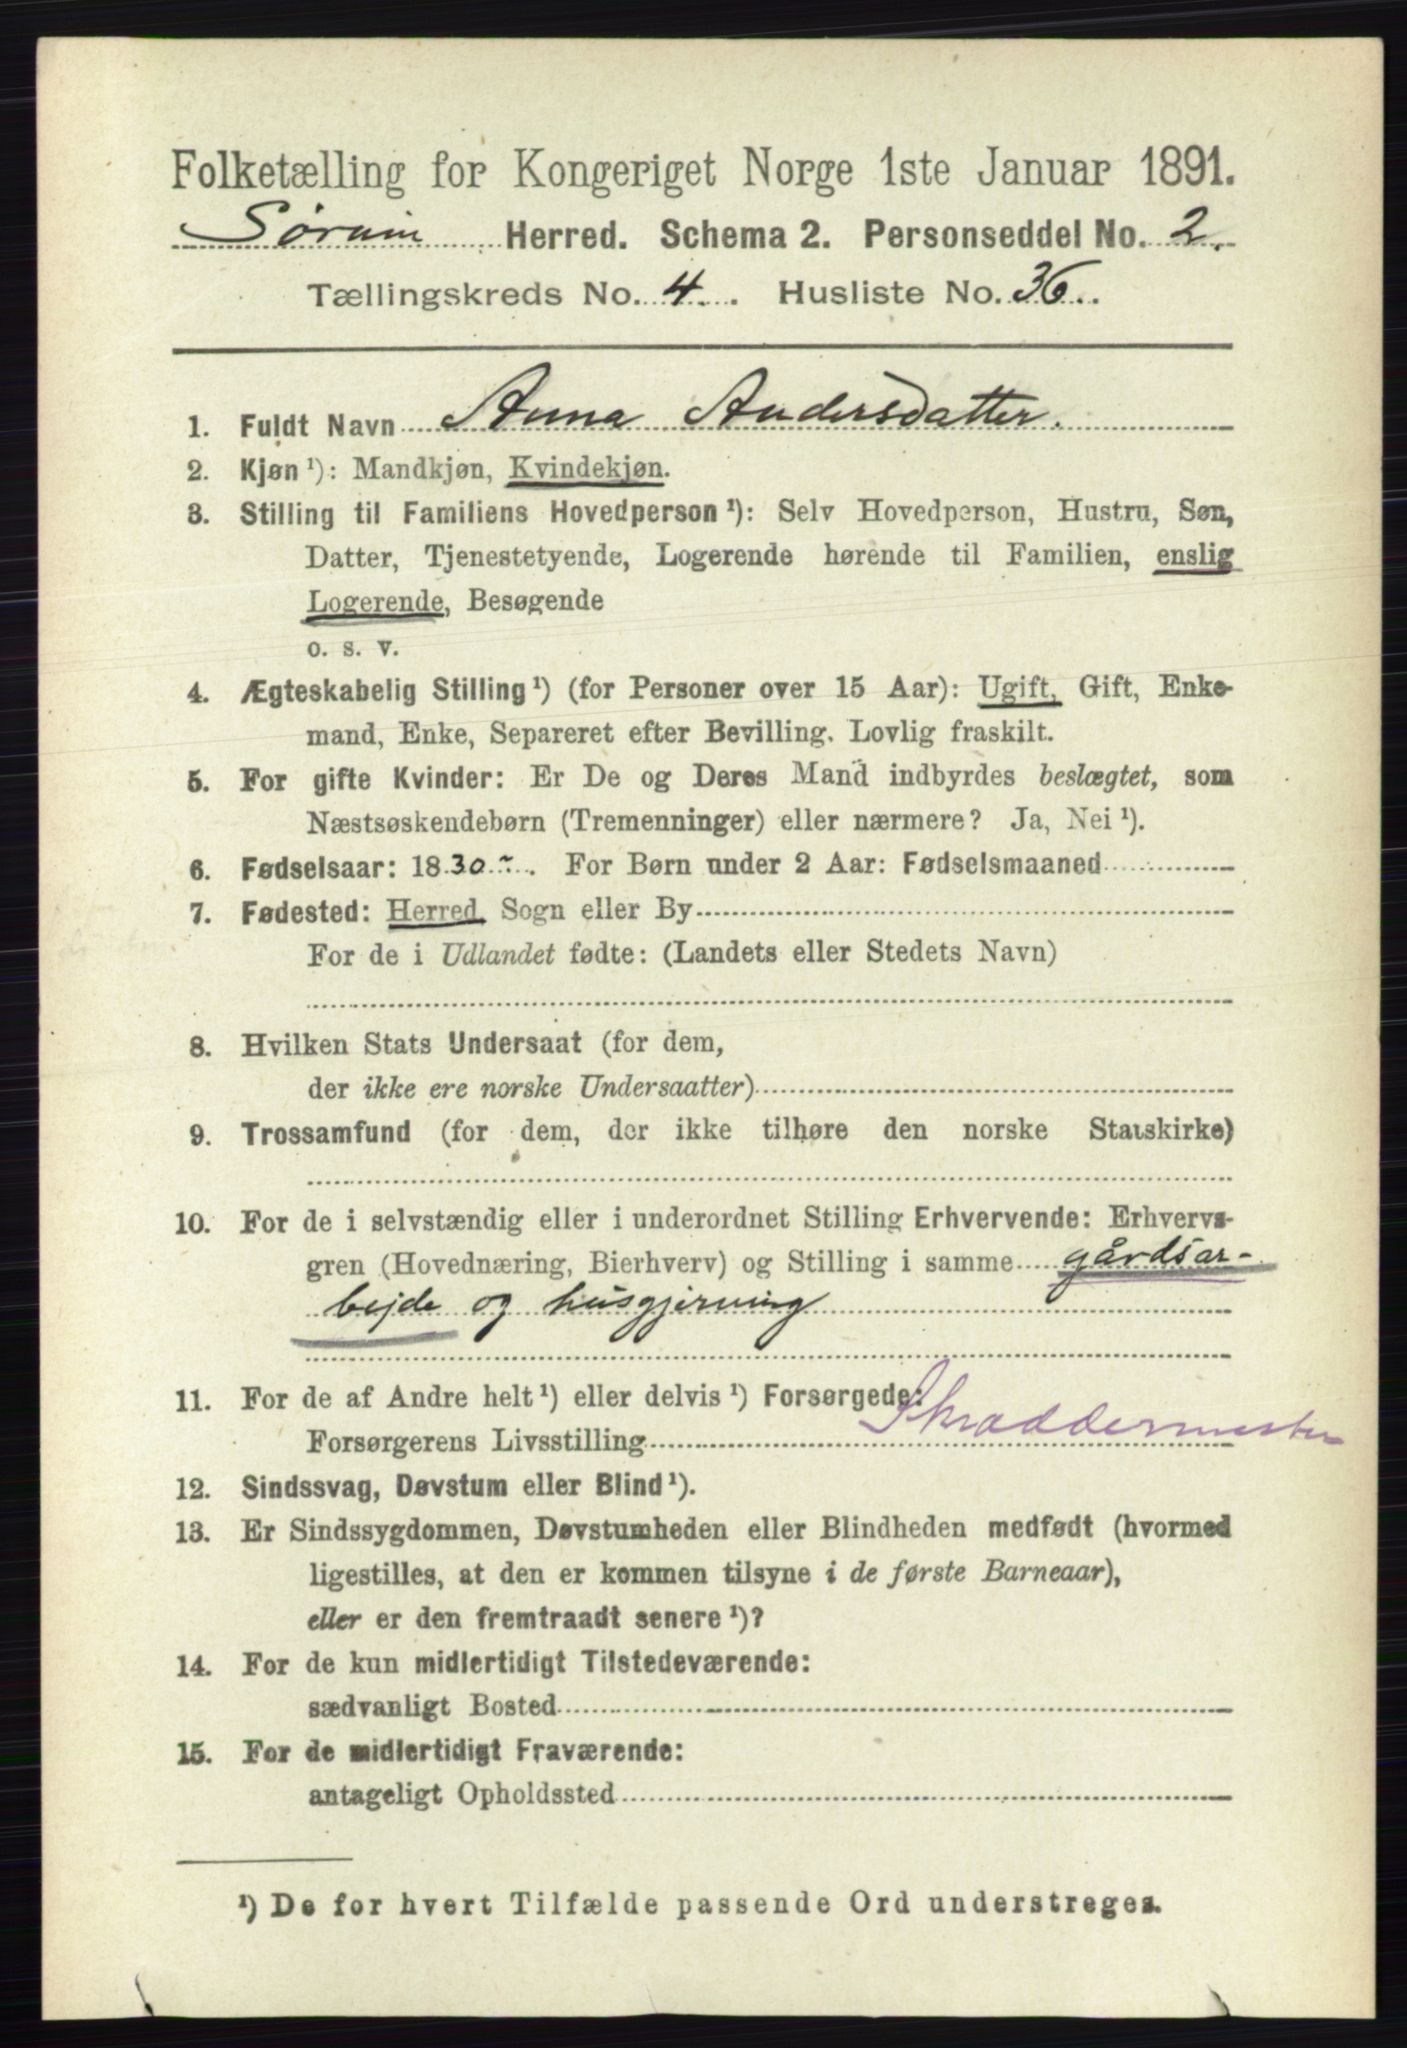 Folketælling for Kongeriget Norge 1ste Januar 1891.
Sørum Herred. Schema 2. Personseddel No. 2.
Tællingskreds No. 4. Husliste No. 36.
1. Fuldt Navn Anna Andersdatter.
2. Kjøn¹): Mandkjøn, Kvindekjøn.
3. Stilling til Familiens Hovedperson¹): Selv Hovedperson, Hustru, Søn,
Datter, Tjenestetyende, Logerende hørende til Familien, enslig
Logerende, Besøgende
o. s. v.
4. Ægteskabelig Stilling¹) (for Personer over 15 Aar): Ugift, Gift, Enke-
mand, Enke, Separeret efter Bevilling. Lovlig fraskilt.
5. For gifte Kvinder: Er De og Deres Mand indbyrdes beslægtet, som
Næstsøskendebørn (Tremenninger) eller nærmere? Ja, Nei¹).
6. Fødselsaar: 1830. For Børn under 2 Aar: Fødselsmaaned
7. Fødested: Herred, Sogn eller By
For de i Udlandet fødte: (Landets eller Stedets Navn)
8. Hvilken Stats Undersaat (for dem,
der ikke ere norske Undersaatter)
9. Trossamfund (for dem, der ikke tilhøre den norske Statskirke)
10. For de i selvstændig eller i underordnet Stilling Erhvervende: Erhvervs-
gren (Hovednæring, Bierhverv) og Stilling i samme gårdsar-
bejde og husgjerning
11. For de af Andre helt¹) eller delvis¹) Forsørgede:
Forsørgerens Livsstilling Skræddermester
12. Sindssvag, Døvstum eller Blind¹).
13. Er Sindssygdommen, Døvstumheden eller Blindheden medfødt (hvormed
ligestilles, at den er kommen tilsyne i de første Barneaar),
eller er den fremtraadt senere¹)?
14. For de kun midlertidigt Tilstedeværende:
sædvanligt Bosted
15. For de midlertidigt Fraværende:
antageligt Opholdssted
¹) De for hvert Tilfælde passende Ord understreges.